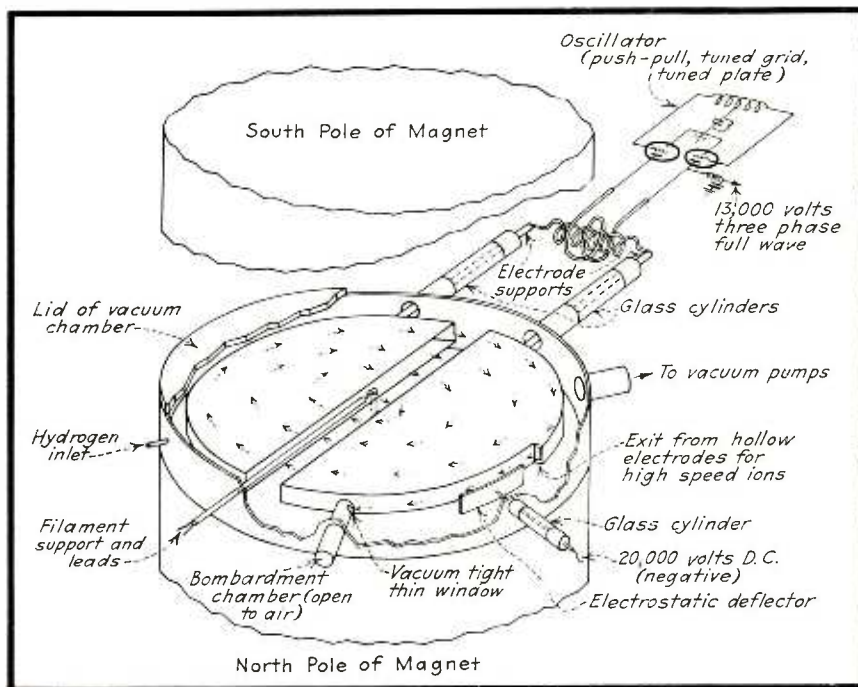 Oscillator
(push-pull, tuned grid,
tuned plate)
South Pole of Magnet
13,000 volts
three phase
full wave
Electrode
supports
Glass cylinders
Lid of vacuum
chamber
To vacuum pumps
Hydrogen
inlet
Exit from hollow
electrodes for
high speed ions
Filament
support and
leads
Glass cylinder
20,000 volts D.C.
(negative)
Bombardment
chamber (open
to air)
Vacuum tight
thin window
Electrostatic deflector
North Pole of Magnet